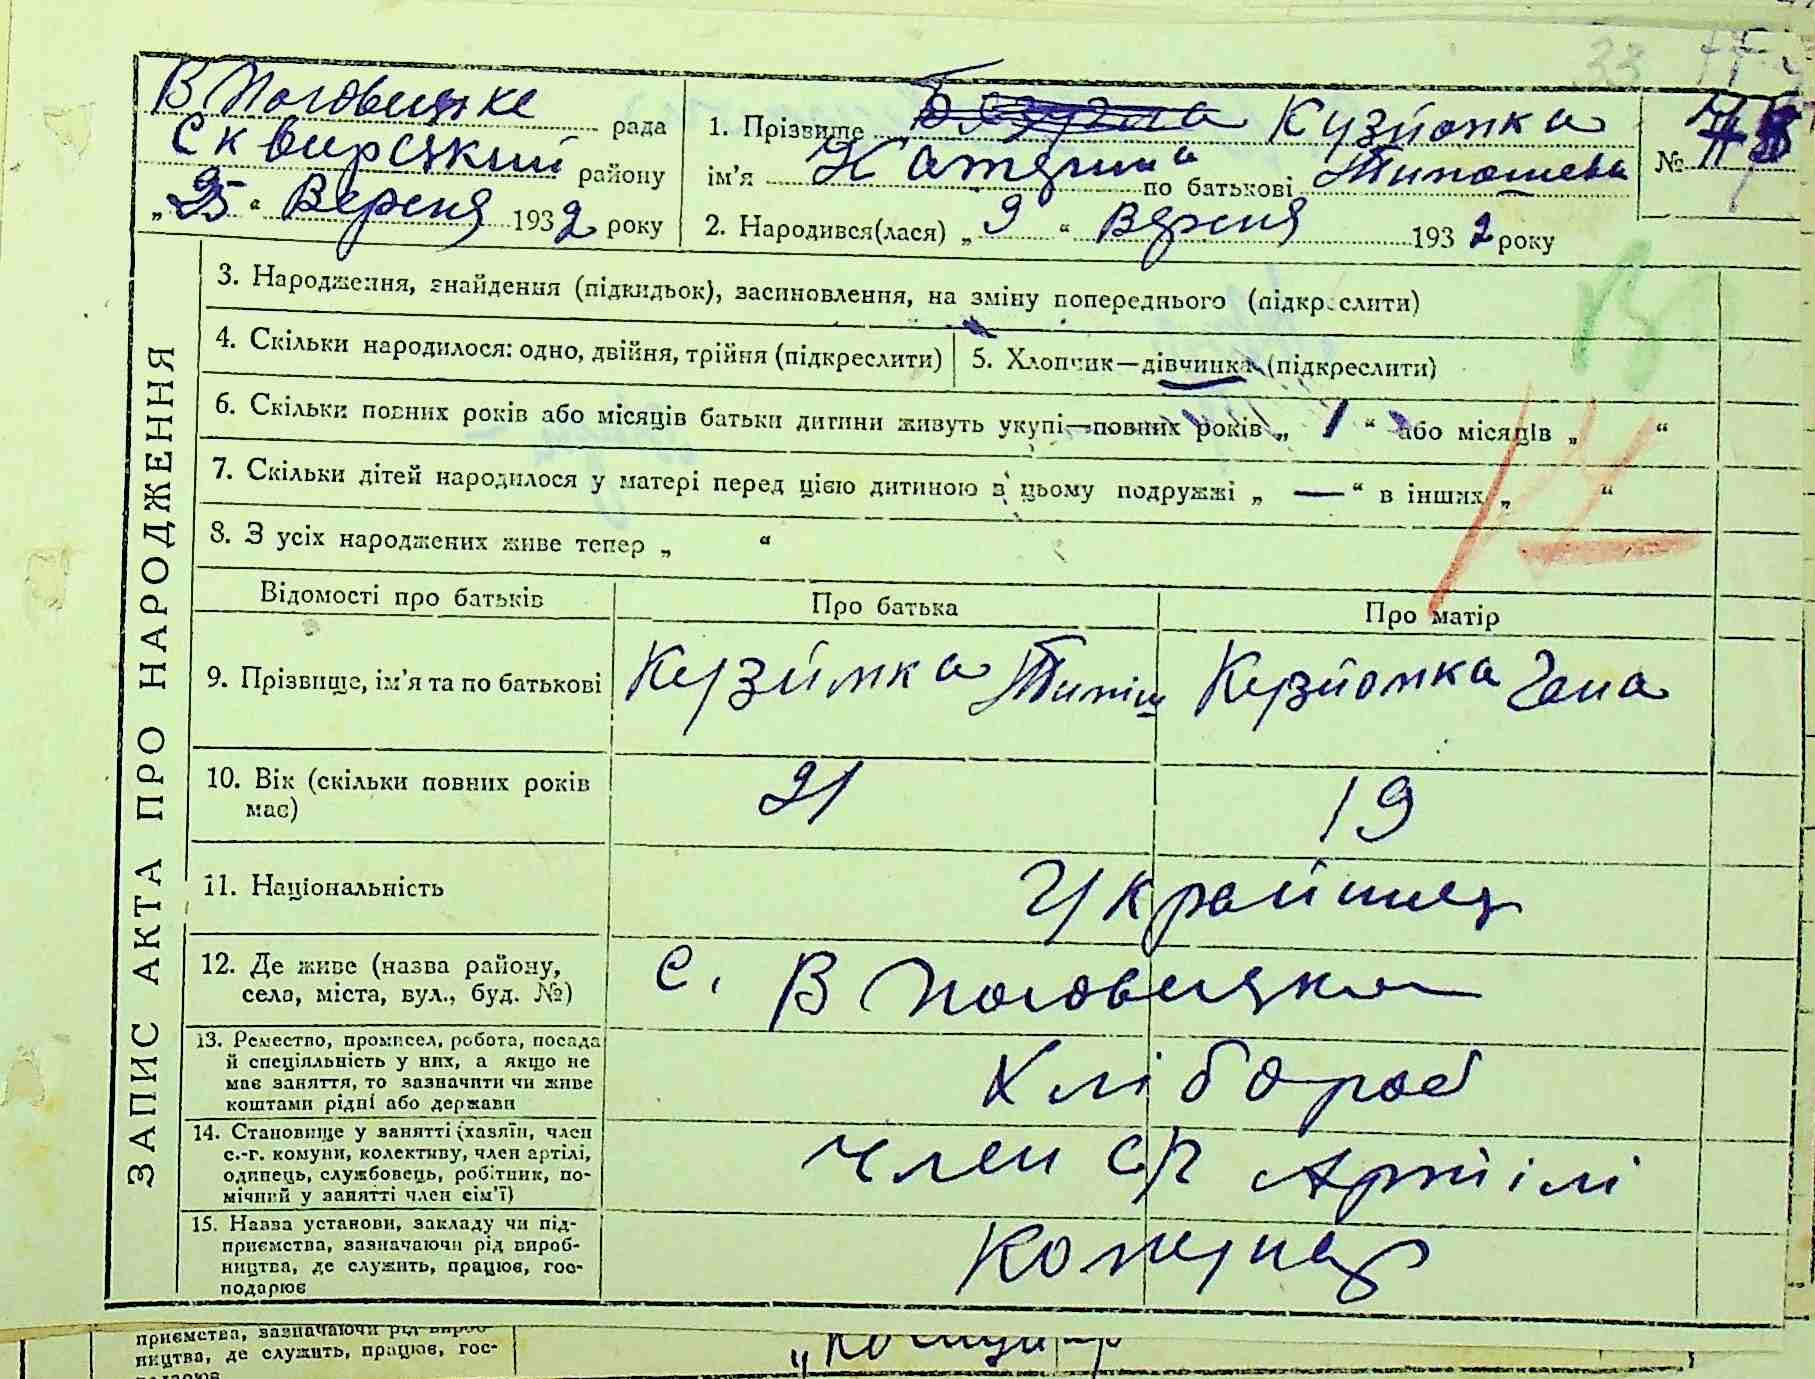 В Половецьке рада
Сквирський району
„25“ Вересня 1932 року
1. Прізвище Кузйомка
ім'я Катерина по батькові Тимошева
№
2. Народився(лася) „9“ Вересня 1932 року
ЗАПИС АКТА ПРО НАРОДЖЕННЯ
3. Народження, знайдення (підкидьок), засиновлення, на зміну попереднього (підкреслити)
4. Скільки народилося: одно, двійня, трійня (підкреслити)
5. Хлопчик—дівчинка (підкреслити)
6. Скільки повних років або місяців батьки дитини живуть укупі—повних років „ 1 “ або місяців „ “
7. Скільки дітей народилося у матері перед цією дитиною в цьому подружжі „ — “ в інших „ “
8. З усіх народжених живе тепер „ “
Відомості про батьків
Про батька
Про матір
9. Прізвище, ім'я та по батькові
Кузймка Тиміш
Кузйомка Гана
10. Вік (скільки повних років має)
21
19
11. Національність
Українец
12. Де живе (назва району,
села, міста, вул., буд. №)
с. В Половецьк
13. Ремество, промисел, робота, посада
й спеціяльність у них, а якщо не
має заняття, то зазначити чи живе
коштами рідні або держави
Хлібороб
14. Становище у занятті (хазяїн, член
с.-г. комуни, колективу, член артілі,
одинець, службовець, робітник, по-
мічний у занятті член сім'ї)
член с/г Артілі
15. Назва установи, закладу чи під-
приємства, зазначаючи рід вироб-
ництва, де служить, працює, гос-
подарює
приємства, зазначаючи рід вироб-
ництва, де служить, працює, гос-
подарює